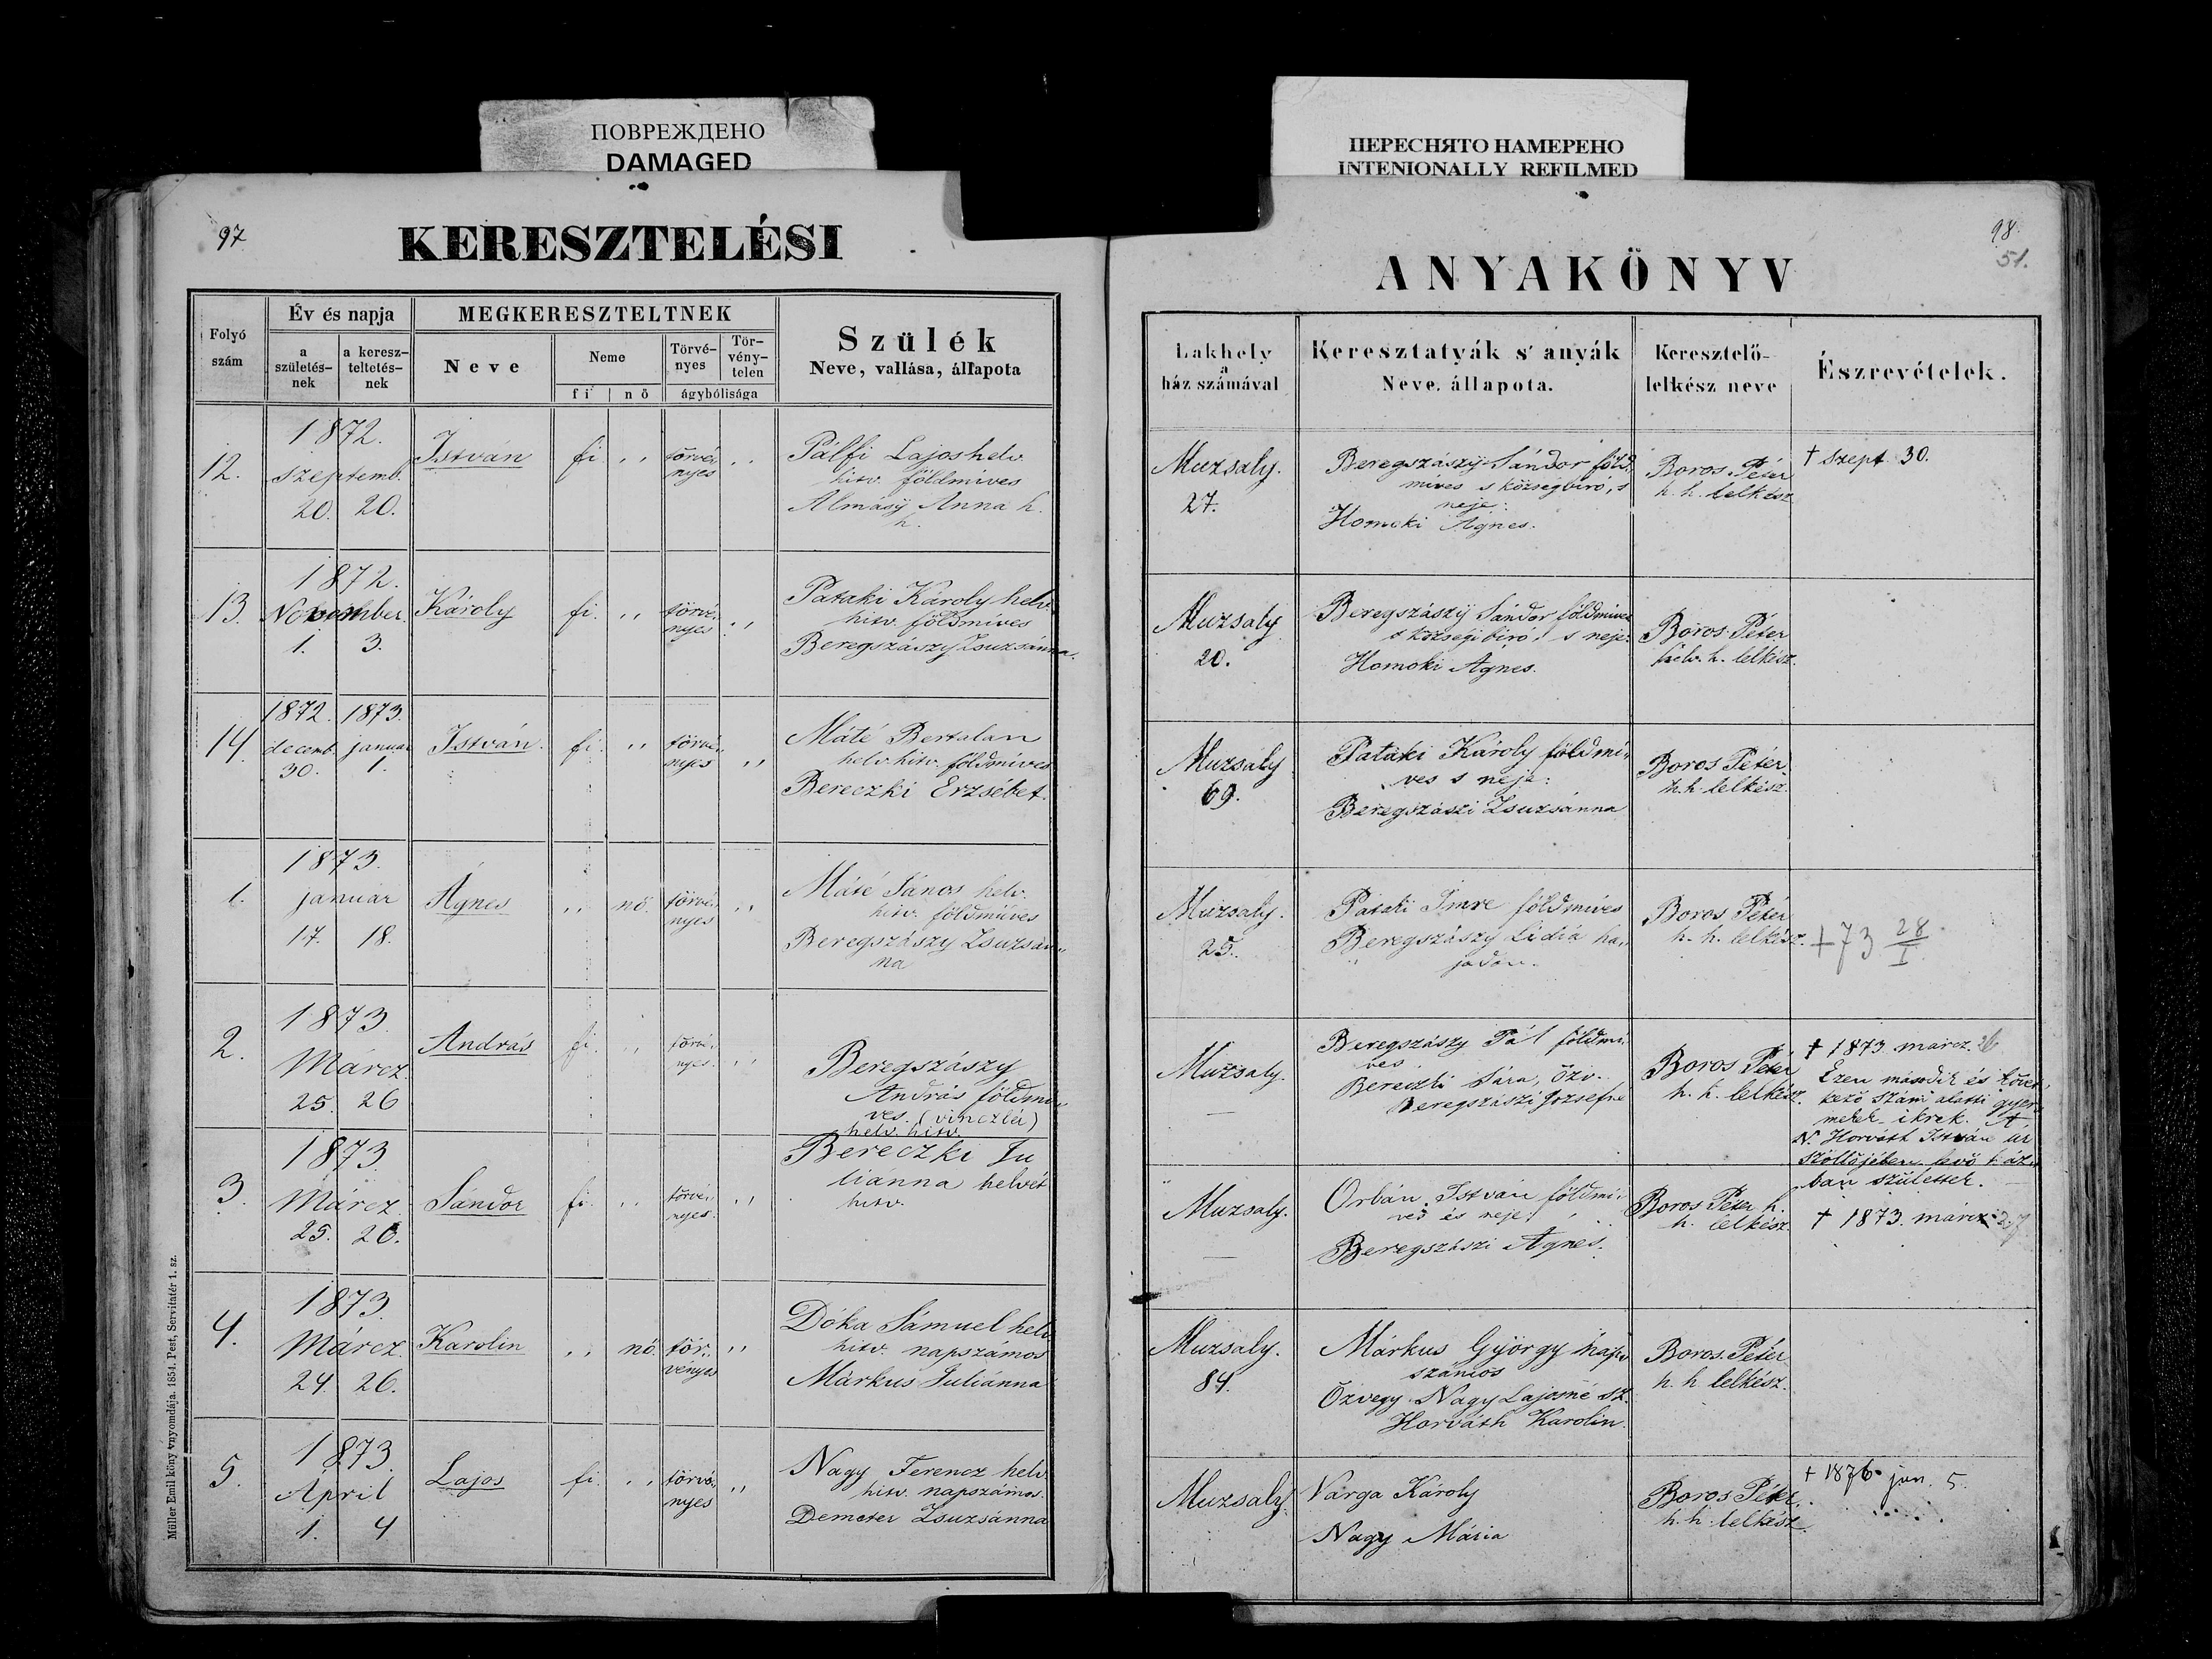 ПОВРЕЖДЕНО
DAMAGED
ПЕРЕСНЯТО НАМЕРЕНО
INTENIONALLY REFILMED
97
KERESZTELÉSI
Folyó
szám
Év és napja
a
születés-
nek
a keresz-
teltetés-
nek
MEGKERESZTELTNEK
Neve
Neme
fi
nő
Törvé-
nyes
Tör-
vény-
telen
ágybólisága
Szülék
Neve, vallása, állapota
12.
1872.
Szeptemb.
20. 20.
István
fi
„
törvé„
nyes
„
Pálfi Lajos helv.
hitv. földmives
Almásy Anna h.
h.
13.
1872.
November
1. 3.
Károly
fi.
„
törvé„
nyes
„
Pataki Károly helv.
hitv. földmives
Beregszászy Zsuzsánna.
14.
1872. 1873.
decemb. januar
30. 1.
István.
fi.
„
törvé„
nyes
„
Máté Bertalan
helv. hitv. földmives
Bereczki Erzsébet.
1.
1873.
januar
17. 18.
Ágnes
„
nő.
törvé„
nyes
„
Máté János helv.
hitv. földmüves
Beregszászy Zsuzsán„
na
2.
1873.
Márcz.
25. 26
András
fi.
„
törvé„
nyes.
„
Beregszászy
András földmi„
ves. (vinczlér)
helv. hitv.
3.
1873.
Márcz.
25. 26.
Sándor
fi.
„
törvé„
nyes.
„
Bereczki Ju
liánna helvét
hitv.
4.
1873.
Márcz.
24. 26.
Karolin
„
nő.
tör„
vényes
„
Dóka Sámuel helv.
hitv. napszámos
Márkus Juliánna
5.
1873.
April
1. 4
Lajos
fi.
„
törvé„
nyes
„
Nagy Ferencz helv.
hitv. napszámos.
Demeter Zsuzsánna
Müller Emil könyvnyomdája. 1854. Pest, Servitatér 1. sz.
98.
51.
ANYAKÖNYV
Lakhely
a
ház számával
Keresztatyák s' anyák
Neve, állapota.
Keresztelő-
lelkész neve
Észrevételek.
Muzsaly.
27.
Beregszászy Sándor föld„
mives s községbiró, s
neje:
Homoki Ágnes.
Boros Péter
h. h. lelkész
† Szept. 30.
Muzsaly
20.
Beregszászy Sándor földmives
s községi biró, s neje:
Homoki Agnes.
Boros Péter
helv. h. lelkész.
Muzsaly
69.
Pataki Károly földmi„
ves s neje:
Beregszászi Zsuzsánna
Boros Péter
h. h. lelkész.
Muzsaly.
25.
Pataki Imre földmives
Beregszászy Lidia ha„
jadon.
Boros Péter
h. h. lelkész.
† 73 28/I
Muzsaly.
Beregszászy Pál földmi„
ves
Bereczki Sára, özv.
Beregszászi Józsefné
Boros Péter
h. h. lelkész.
† 1873. marcz. 26
Ezen második és követ„
kező szám alatti gyer„
mekek ikrek. A
N. Horváth István úr
szöllőjében levő ház„
ban születtek.
Muzsaly.
Orbán István földmi„
ves és neje:
Beregszászi Ágnes.
Boros Péter h.
h. lelkész.
† 1873. márcz. 27
Muzsaly.
84.
Márkus György nap„
számos
Özvegy Nagy Lajosné sz.
Horváth Karolin.
Boros Péter
h. h. lelkész.
Muzsaly.
Varga Károly
Nagy Mária
Boros Péter.
h. h. lelkész.
† 1876. jun. 5.